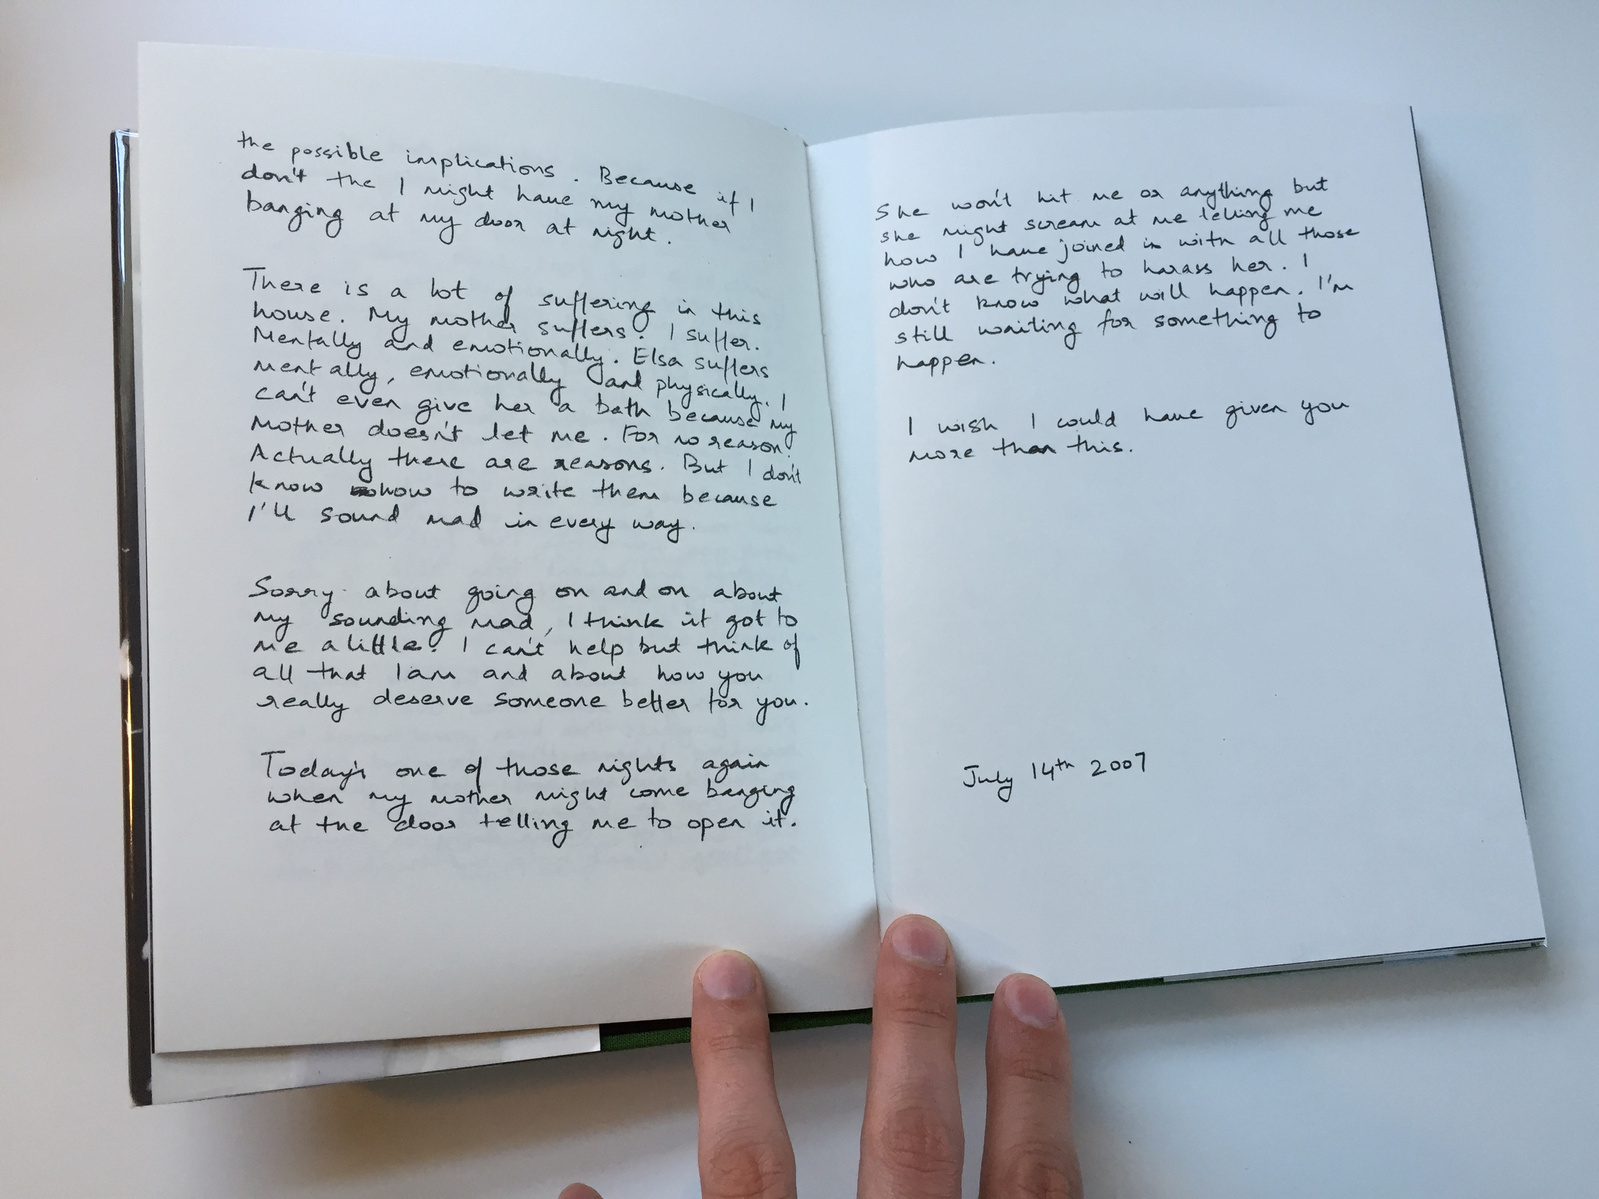 the possible implications. Because if I
don't the I might have my mother
banging at my door at night.
There is a lot of suffering in this
house. My mother suffers. I suffer.
Mentally and emotionally. Elsa suffers
mentally, emotionally and physically. I
can't even give her a bath because my
mother doesn't let me. For no reason.
Actually there are reasons. But I don't
know how to write them because
I'll sound mad in every way.
Sorry about going on and on about
my sounding mad, I think it got to
me a little. I can't help but think of
all that I am and about how you
really deserve someone better for you.
Today's one of those nights again
when my mother might come banging
at the door telling me to open it.
She won't hit me or anything but
she might scream at me telling me
how I have joined in with all those
who are trying to harass her. I
don't know what will happen. I'm
still waiting for something to
happen.
I wish I could have given you
more than this.
July 14th 2007